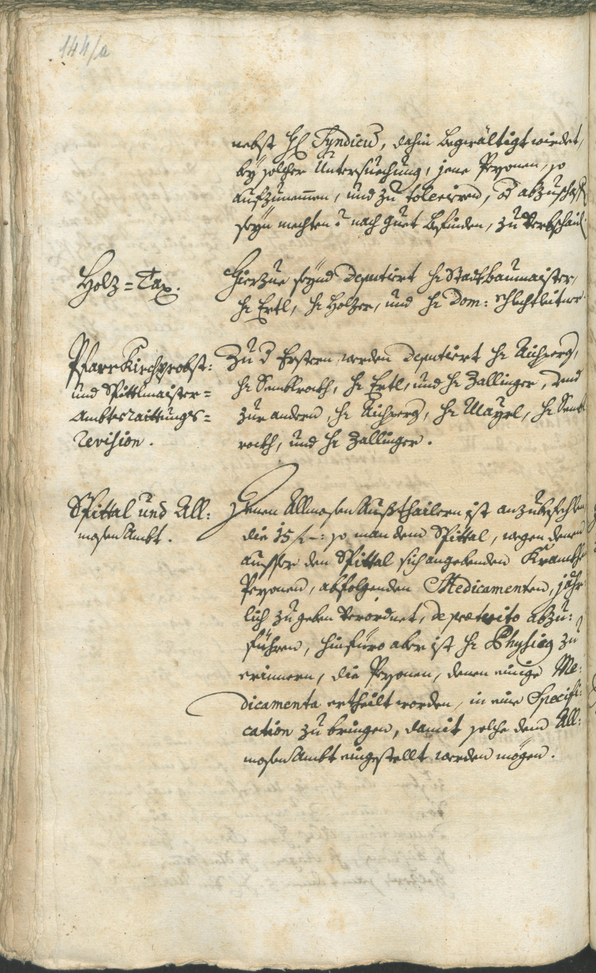 144/a
nebst H. Syndico, dahin begwältigt worden,
bey solcher Untersuechung, jene Persohnen, so
aufzunemmen, und zu toleriren, od abzuschaffen
seyn mechten? nach guet befinden, zu verbschaiden
Holz=Tax.
Hierzue seynd deputiert Hr Stadtbaumaister,
Hr Ertl, Hr Holzer, und Hr Dom:
Pfarrkirchprobst:
und Spittlmaister=
Ambtsraittungs=
revision.
Zu d Erstern werden deputiert Hr
Hr Hr Ertl, und Hr Zallinger, und
zur andern Hr Hr Mayrl, Hr
und Hr Zallinger.
Spittal und All:
mosen Ambt.
Denen Allmosen Außthailern ist anzubefehlen
die 15 f –: so man dem Spittal, wegen denen
ausser den Spittal sich angebenden Krankhen
Persohnen, abfolgenden Medicamenten, jähr
lich zu geben verordnet, de praeterito abzu:
führen, hinfüro aber ist Hr Physico zu
erinnern, die Persohnen, denen einige Me:
dicamenta ertheilt worden, in eine Specifi:
cation zu bringen, damit solche dem All:
mosen Ambt eingestellt werden mögen.